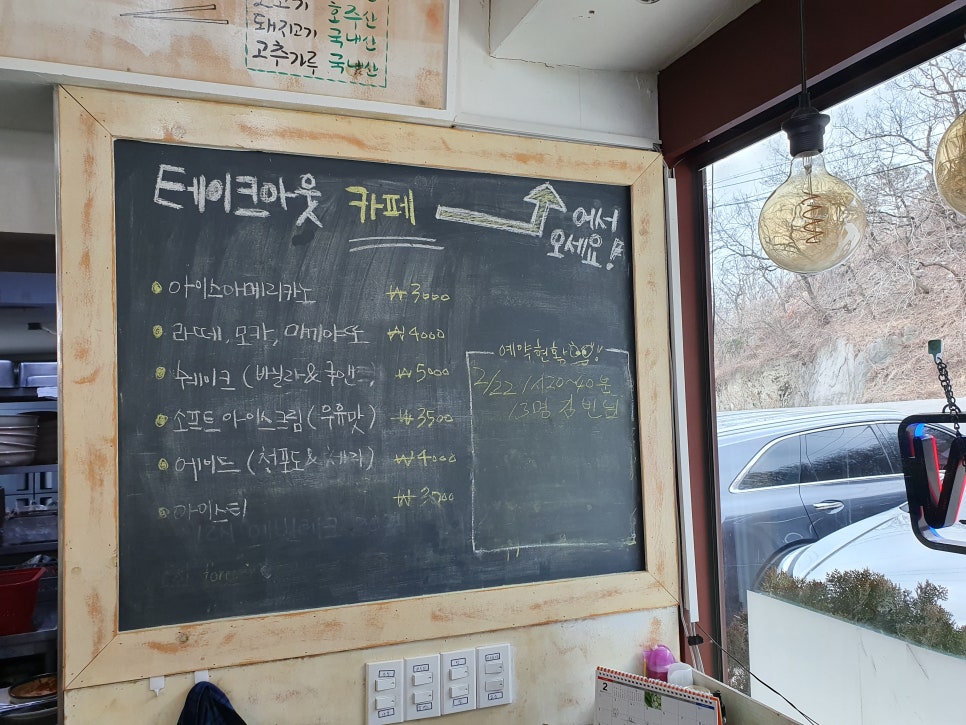 호주산
돼지고기 국내산
고추가루 국내산
테이크아웃 카페
어서
오세요!
아이스아메리카노 ₩3000
라떼, 모카, 마끼야또 ₩4000
쉐이크 (바닐라 & 쿠앤, ₩5000
소프트 아이스크림 (우유맛) ₩3500
에이드 (청포도 & 체리) ₩4000
아이스티 ₩3000
예약현황
2/22 1시20~40분
13명
2